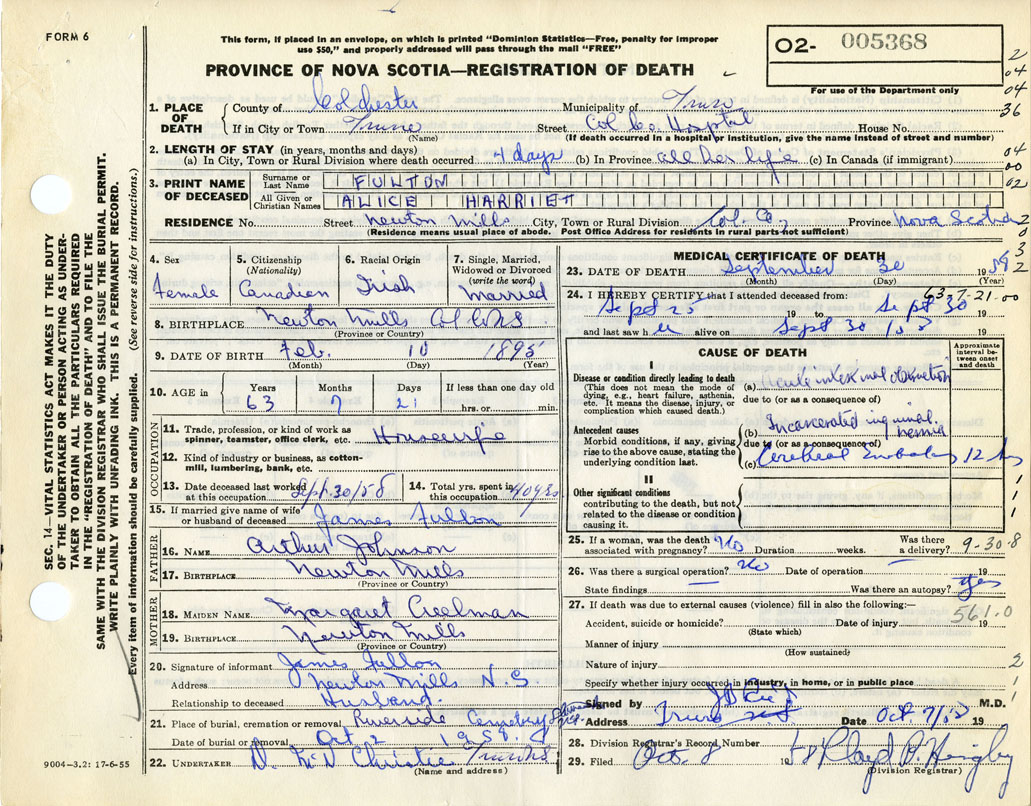 FORM 6
This form, if placed in an envelope, on which is printed "Dominion Statistics—Free, penalty for improper
use $50," and properly addressed will pass through the mail "FREE"
PROVINCE OF NOVA SCOTIA—REGISTRATION OF DEATH
O2- 005368
For use of the Department only
2
04
04
36
04
00
02
2
0
3
2
1. PLACE OF DEATH
County of Colchester Municipality of Truro
If in City or Town Truro Street Col. Co. Hospital House No.
(Name) (If death occurred in a hospital or institution, give the name instead of street and number)
2. LENGTH OF STAY (in years, months and days)
(a) In City, Town or Rural Division where death occurred 4 days (b) In Province all her life (c) In Canada (if immigrant)
3. PRINT NAME OF DECEASED
Surname or Last Name FULTON
All Given or Christian Names ALICE HARRIET
RESIDENCE No. Street Newton Mills City, Town or Rural Division Col. Co. Province Nova Scotia
(Residence means usual place of abode. Post Office Address for residents in rural parts not sufficient)
4. Sex
Female
5. Citizenship (Nationality)
Canadian
6. Racial Origin
Irish
7. Single, Married, Widowed or Divorced (write the word)
Married
8. BIRTHPLACE Newton Mills Col Co NS
(Province or Country)
9. DATE OF BIRTH Feb. 10 1895
(Month) (Day) (Year)
10. AGE in
Years 63
Months 7
Days 21
If less than one day old
hrs. or min.
OCCUPATION
11. Trade, profession, or kind of work as
spinner, teamster, office clerk, etc. Housewife
12. Kind of industry or business, as cotton-
mill, lumbering, bank, etc.
13. Date deceased last worked
at this occupation Sept. 30/58
14. Total yrs. spent in
this occupation 40 yrs
15. If married give name of wife
or husband of deceased James Fulton
FATHER
16. NAME Arthur Johnson
17. BIRTHPLACE Newton Mills
(Province or Country)
MOTHER
18. MAIDEN NAME Margaret Creelman
19. BIRTHPLACE Newton Mills
(Province or Country)
20. Signature of informant James Fulton
Address Newton Mills N.S
Relationship to deceased Husband.
21. Place of burial, cremation or removal Riverside Cemetery
Date of burial or removal Oct 2 1958.
22. UNDERTAKER D. McD Christie Truro NS
(Name and address)
MEDICAL CERTIFICATE OF DEATH
23. DATE OF DEATH September 30 1958
(Month) (Day) (Year)
24. I HEREBY CERTIFY that I attended deceased from: 63-7-21.00
Sept 25 19 to Sept 30 19
and last saw h er alive on Sept 30 19
CAUSE OF DEATH
Approximate interval between onset and death
I
Disease or condition directly leading to death
(This does not mean the mode of
dying, e.g., heart failure, asthenia,
etc. It means the disease, injury, or
complication which caused death.)
(a) Acute intestinal obstruction
due to (or as a consequence of)
Antecedent causes
Morbid conditions, if any, giving
rise to the above cause, stating the
underlying condition last.
(b) Incarcerated inguinal hernia
due to (or as a consequence of)
(c) Cerebral Embolus 12 hrs
II
Other significant conditions
contributing to the death, but not
related to the disease or condition
causing it.
1
1
1
25. If a woman, was the death
associated with pregnancy? No Duration weeks. Was there a delivery? 9-30-8
26. Was there a surgical operation? No Date of operation 19
State findings Was there an autopsy? Yes
27. If death was due to external causes (violence) fill in also the following:— 561.0
Accident, suicide or homicide? Date of injury 19
(State which)
Manner of injury
(How sustained)
Nature of injury
Specify whether injury occurred in industry, in home, or in public place
2
1
1
Signed by M.D.
Address Truro NS Date Oct. 7/58 19
28. Division Registrar's Record Number
29. Filed Oct. 8 19
(Division Registrar)
SEC. 14—VITAL STATISTICS ACT MAKES IT THE DUTY
OF THE UNDERTAKER OR PERSON ACTING AS UNDER-
TAKER TO OBTAIN ALL THE PARTICULARS REQUIRED
IN THE "REGISTRATION OF DEATH" AND TO FILE THE
SAME WITH THE DIVISION REGISTRAR WHO SHALL ISSUE THE BURIAL PERMIT.
WRITE PLAINLY WITH UNFADING INK. THIS IS A PERMANENT RECORD.
Every item of information should be carefully supplied. (See reverse side for instructions.)
9004—3.2: 17-6-55